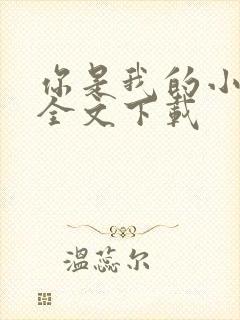 你是我的小
全文下载
温蕊尔